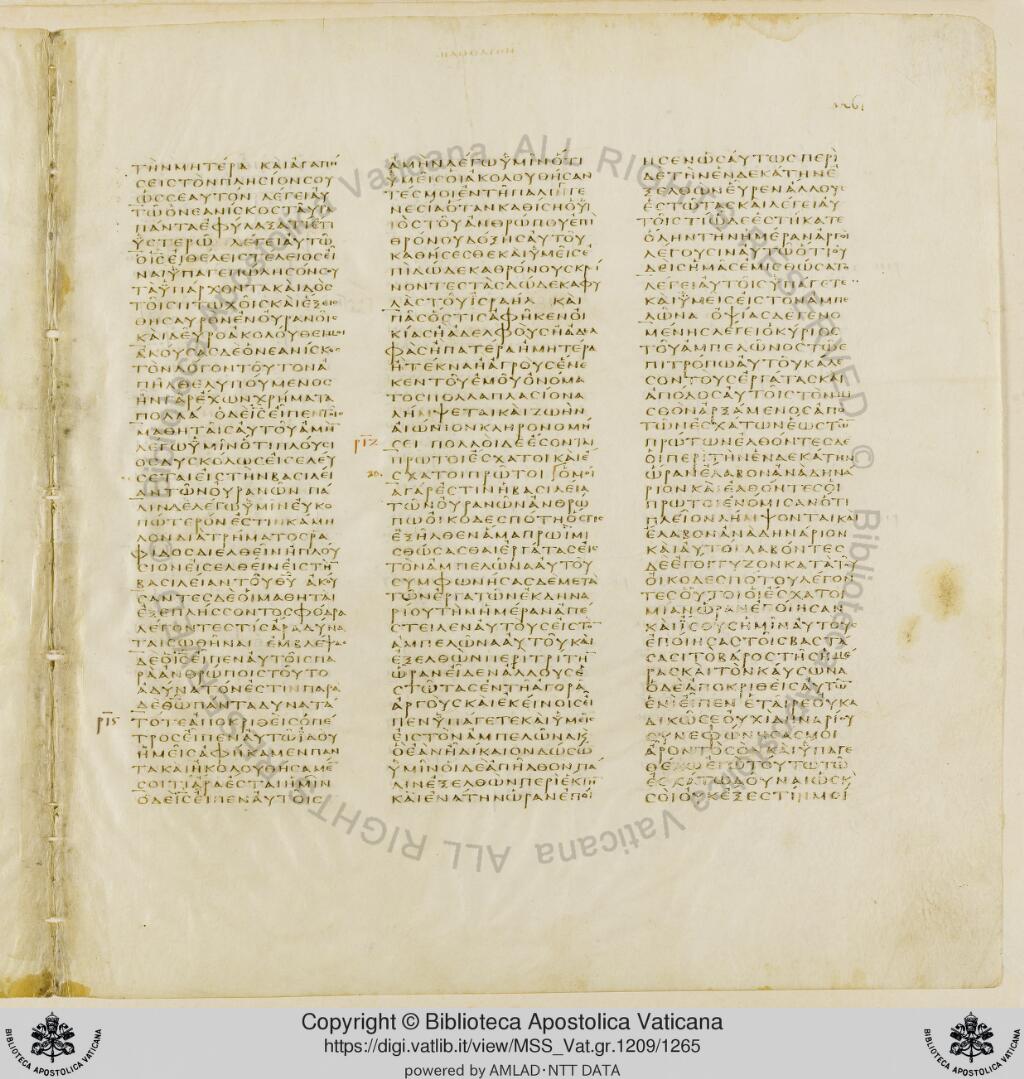 ΤΗΝΜΗΤΕΡΑ ΚΑΙΑΓΑΠΗ
ΣΕΙΣΤΟΝΠΛΗΣΙΟΝΣΟΥ
ΩΣΣΕΑΥΤΟΝ ΛΕΓΕΙΑΥ
ΤΩΟΝΕΑΝΙΣΚΟΣΤΑΥΤΑ
ΠΑΝΤΑΕΦΥΛΑΞΑΤΙΕΤΙ
ΥΣΤΕΡΩ ΛΕΓΕΙΑΥΤΩ
ΟΙΣΕΙΘΕΛΕΙΣΤΕΛΕΙΟΣΕΙ
ΝΑΙΥΠΑΓΕΠΩΛΗΣΟΝΣΟΥ
ΤΑΥΠΑΡΧΟΝΤΑΚΑΙΔΟΣ
ΤΟΙΣΠΤΩΧΟΙΣΚΑΙΕΞΕΙΣ
ΘΗΣΑΥΡΟΝΕΝΟΥΡΑΝΟΙΣ
ΚΑΙΔΕΥΡΟΑΚΟΛΟΥΘΕΙΜΟΙ
ΑΚΟΥΣΑΣΔΕΟΝΕΑΝΙΣΚΟΣ
ΤΟΝΛΟΓΟΝΤΟΥΤΟΝΑ
ΠΗΛΘΕΛΥΠΟΥΜΕΝΟΣ
ΗΝΓΑΡΕΧΩΝΧΡΗΜΑΤΑ
ΠΟΛΛΑ ΟΔΕΙΣΕΙΠΕΝΤΟΙΣ
ΜΑΘΗΤΑΙΣΑΥΤΟΥΑΜΗ
ΛΕΓΩΥΜΙΝΟΤΙΠΛΟΥΣΙ
ΟΣΔΥΣΚΟΛΩΣΕΙΣΕΛΕΥ
ΣΕΤΑΙΕΙΣΤΗΝΒΑΣΙΛΕΙ
ΑΝΤΩΝΟΥΡΑΝΩΝ ΠΑ
ΛΙΝΔΕΛΕΓΩΥΜΙΝΕΥΚΟ
ΠΩΤΕΡΟΝΕΣΤΙΝΚΑΜΗ
ΛΟΝΔΙΑΤΡΗΜΑΤΟΣΡΑ
ΦΙΔΟΣΔΙΕΛΘΕΙΝΗΠΛΟΥ
ΣΙΟΝΕΙΣΕΛΘΕΙΝΕΙΣΤΗ
ΒΑΣΙΛΕΙΑΝΤΟΥΘΥ ΑΚΟΥ
ΣΑΝΤΕΣΔΕΟΙΜΑΘΗΤΑΙ
ΕΞΕΠΛΗΣΣΟΝΤΟΣΦΟΔΡΑ
ΛΕΓΟΝΤΕΣΤΙΣΑΡΑΔΥΝΑ
ΤΑΙΣΩΘΗΝΑΙ ΕΜΒΛΕΨΑΣ
ΔΕΟΙΣΕΙΠΕΝΑΥΤΟΙΣΠΑ
ΡΑΑΝΘΡΩΠΟΙΣΤΟΥΤΟ
ΑΔΥΝΑΤΟΝΕΣΤΙΝΠΑΡΑ
ΔΕΘΩΠΑΝΤΑΔΥΝΑΤΑ
ΡΙϚ
ΤΟΤΕΑΠΟΚΡΙΘΕΙΣΟΠΕ
ΤΡΟΣΕΙΠΕΝΑΥΤΩΙΔΟΥ
ΗΜΕΙΣΑΦΗΚΑΜΕΝΠΑΝ
ΤΑΚΑΙΗΚΟΛΟΥΘΗΣΑΜΕ
ΣΟΙΤΙΑΡΑΕΣΤΑΙΗΜΙΝ
ΟΔΕΙΣΕΙΠΕΝΑΥΤΟΙΣ
ΑΜΗΝΛΕΓΩΥΜΙΝΟΤΙ
ΥΜΕΙΣΟΙΑΚΟΛΟΥΘΗΣΑΝ
ΤΕΣΜΟΙΕΝΤΗΠΑΛΙΓΓΕ
ΝΕΣΙΑΟΤΑΝΚΑΘΙΣΗΟΥΙ
ΙΟΣΤΟΥΑΝΘΡΩΠΟΥΕΠΙ
ΘΡΟΝΟΥΔΟΞΗΣΑΥΤΟΥ
ΚΑΘΗΣΕΣΘΕΚΑΙΥΜΕΙΣΕ
ΠΙΔΩΔΕΚΑΘΡΟΝΟΥΣΚΡΙ
ΝΟΝΤΕΣΤΑΣΔΩΔΕΚΑΦΥ
ΛΑΣΤΟΥΙΣΡΑΗΛ ΚΑΙ
ΠΑΣΟΣΤΙΣΑΦΗΚΕΝΟΙ
ΚΙΑΣΗΑΔΕΛΦΟΥΣΗΑΔΕΛ
ΦΑΣΗΠΑΤΕΡΑΗΜΗΤΕΡΑ
ΗΤΕΚΝΑΗΑΓΡΟΥΣΕΝΕ
ΚΕΝΤΟΥΕΜΟΥΟΝΟΜΑ
ΤΟΣΠΟΛΛΑΠΛΑΣΙΟΝΑ
ΛΗΜΨΕΤΑΙΚΑΙΖΩΗΝ
ΑΙΩΝΙΟΝΚΛΗΡΟΝΟΜΗ
ΡΙΖ
ΣΕΙ ΠΟΛΛΟΙΔΕΕΣΟΝΤΑΙ
ΠΡΩΤΟΙΕΣΧΑΤΟΙΚΑΙΕ
ΣΧΑΤΟΙΠΡΩΤΟΙ ΟΜΟΙ
ΑΓΑΡΕΣΤΙΝΗΒΑΣΙΛΕΙΑ
ΤΩΝΟΥΡΑΝΩΝΑΝΘΡΩ
ΠΩΟΙΚΟΔΕΣΠΟΤΗΟΣΤΙΣ
ΕΞΗΛΘΕΝΑΜΑΠΡΩΙΜΙ
ΣΘΩΣΑΣΘΑΙΕΡΓΑΤΑΣΕΙΣ
ΤΟΝΑΜΠΕΛΩΝΑΑΥΤΟΥ
ΣΥΜΦΩΝΗΣΑΣΔΕΜΕΤΑ
ΤΩΝΕΡΓΑΤΩΝΕΚΔΗΝΑ
ΡΙΟΥΤΗΝΗΜΕΡΑΝΑΠΕ
ΣΤΕΙΛΕΝΑΥΤΟΥΣΕΙΣΤΟΝ
ΑΜΠΕΛΩΝΑΑΥΤΟΥΚΑΙ
ΕΞΕΛΘΩΝΠΕΡΙΤΡΙΤΗ
ΩΡΑΝΕΙΔΕΝΑΛΛΟΥΣΕ
ΣΤΩΤΑΣΕΝΤΗΑΓΟΡΑ
ΑΡΓΟΥΣΚΑΙΕΚΕΙΝΟΙΣΕΙ
ΠΕΝΥΠΑΓΕΤΕΚΑΙΥΜΕΙΣ
ΕΙΣΤΟΝΑΜΠΕΛΩΝΑΚΑΙ
ΟΕΑΝΗΔΙΚΑΙΟΝΔΩΣΩ
ΥΜΙΝΟΙΔΕΑΠΗΛΘΟΝΠΑ
ΛΙΝΕΞΕΛΘΩΝΠΕΡΙΕΚΤΗΝ
ΚΑΙΕΝΑΤΗΝΩΡΑΝΕΠΟΙ
ΗΣΕΝΩΣΑΥΤΩΣΠΕΡΙ
ΔΕΤΗΝΕΝΔΕΚΑΤΗΝΕ
ΞΕΛΘΩΝΕΥΡΕΝΑΛΛΟΥΣ
ΕΣΤΩΤΑΣΚΑΙΛΕΓΕΙΑΥ
ΤΟΙΣΤΙΩΔΕΕΣΤΗΚΑΤΕ
ΟΛΗΝΤΗΝΗΜΕΡΑΝΑΡΓΟΙ
ΛΕΓΟΥΣΙΝΑΥΤΩΟΤΙΟΥ
ΔΕΙΣΗΜΑΣΕΜΙΣΘΩΣΑΤΟ
ΛΕΓΕΙΑΥΤΟΙΣΥΠΑΓΕΤΕ
ΚΑΙΥΜΕΙΣΕΙΣΤΟΝΑΜΠΕ
ΛΩΝΑ ΟΨΙΑΣΔΕΓΕΝΟ
ΜΕΝΗΣΛΕΓΕΙΟΚΥΡΙΟΣ
ΤΟΥΑΜΠΕΛΩΝΟΣΤΩΕ
ΠΙΤΡΟΠΩΑΥΤΟΥΚΑΛΕ
ΣΟΝΤΟΥΣΕΡΓΑΤΑΣΚΑΙ
ΑΠΟΔΟΣΑΥΤΟΙΣΤΟΝΜΙ
ΣΘΟΝΑΡΞΑΜΕΝΟΣΑΠΟ
ΤΩΝΕΣΧΑΤΩΝΕΩΣΤΩ
ΠΡΩΤΩΝΕΛΘΟΝΤΕΣΔΕ
ΟΙΠΕΡΙΤΗΝΕΝΔΕΚΑΤΗΝ
ΩΡΑΝΕΛΑΒΟΝΑΝΑΔΗΝΑ
ΡΙΟΝΚΑΙΕΛΘΟΝΤΕΣΟΙ
ΠΡΩΤΟΙΕΝΟΜΙΣΑΝΟΤΙ
ΠΛΕΙΟΝΛΗΜΨΟΝΤΑΙΚΑΙ
ΕΛΑΒΟΝΑΝΑΔΗΝΑΡΙΟΝ
ΚΑΙΑΥΤΟΙΛΑΒΟΝΤΕΣ
ΔΕΕΓΟΓΓΥΖΟΝΚΑΤΑΤΟΥ
ΟΙΚΟΔΕΣΠΟΤΟΥΛΕΓΟΝ
ΤΕΣΟΥΤΟΙΟΙΕΣΧΑΤΟΙ
ΜΙΑΝΩΡΑΝΕΠΟΙΗΣΑΝ
ΚΑΙΙΣΟΥΣΗΜΙΝΑΥΤΟΥΣ
ΕΠΟΙΗΣΑΣΤΟΙΣΒΑΣΤΑ
ΣΑΣΙΤΟΒΑΡΟΣΤΗΣΗΜΕ
ΡΑΣΚΑΙΤΟΝΚΑΥΣΩΝΑ
ΟΔΕΑΠΟΚΡΙΘΕΙΣΑΥΤΩ
ΕΝΙΕΙΠΕΝ ΕΤΑΙΡΕΟΥΚΑ
ΔΙΚΩΣΕΟΥΧΙΔΗΝΑΡΙΟΥ
ΣΥΝΕΦΩΝΗΣΑΣΜΟΙ
ΑΡΟΝΤΟΣΟΝΚΑΙΥΠΑΓΕ
ΘΕΛΩΕΓΩΤΟΥΤΩΤΩ
ΕΣΧΑΤΩΔΟΥΝΑΙΩΣΚ
ΣΟΙΟΥΚΕΞΕΣΤΙΝΜΟΙ
Copyright © Biblioteca Apostolica Vaticana
https://digi.vatlib.it/view/MSS_Vat.gr.1209/1265
powered by AMLAD·NTT DATA
BIBLIOTECA APOSTOLICA VATICANA
BIBLIOTECA APOSTOLICA VATICANA